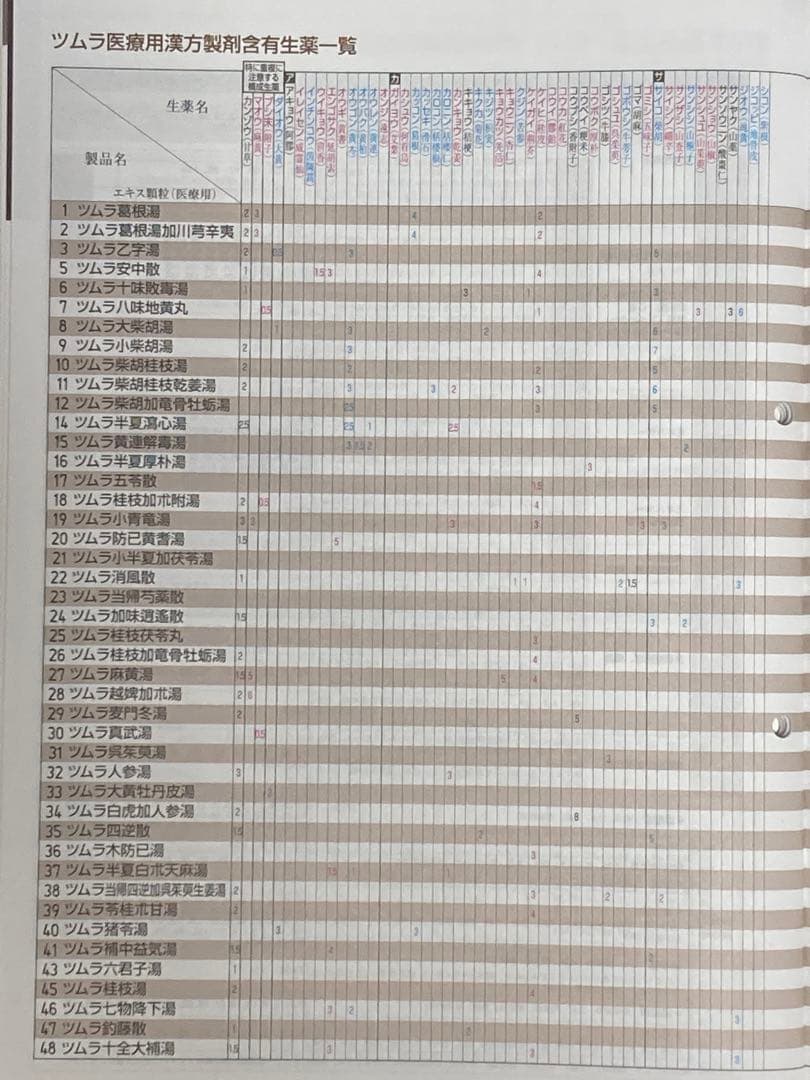 ツムラ医療用漢方製剤含有生薬一覧
特に重複に
注意する
構成生薬
生薬名
製品名
エキス顆粒(医療用)
ア
カ
サ
カンゾウ(甘草)
マオウ(麻黄)
ダイオウ(大黄)
アキョウ(阿膠)
イレイセン(威霊仙)
インチンコウ(茵蔯蒿)
エンゴサク(延胡索)
オウギ(黄耆)
オウゴン(黄芩)
オウバク(黄柏)
オウレン(黄連)
オンジ(遠志)
カシュウ(何首烏)
カッコン(葛根)
カッセキ(滑石)
カロコン(栝楼根)
カンキョウ(乾姜)
キキョウ(桔梗)
キョウニン(杏仁)
クジン(苦参)
ケイヒ(桂皮)
コウブシ(香附子)
コウベイ(粳米)
コウボク(厚朴)
ゴシツ(牛膝)
ゴボウシ(牛蒡子)
ゴマ(胡麻)
サンザシ(山査子)
サンシシ(山梔子)
サンソウニン(酸棗仁)
サンヤク(山薬)
ジオウ(地黄)
ジコッピ(地骨皮)
シコン(紫根)
1 ツムラ葛根湯 2 3 4 2
2 ツムラ葛根湯加川芎辛夷 2 3 4 2
3 ツムラ乙字湯 2 0.5 3 5
5 ツムラ安中散 1 1.5 3 4
6 ツムラ十味敗毒湯 1 3 1 3
7 ツムラ八味地黄丸 0.5 1 3 3 6
8 ツムラ大柴胡湯 1 3 2 6
9 ツムラ小柴胡湯 2 3 7
10 ツムラ柴胡桂枝湯 2 2 2 5
11 ツムラ柴胡桂枝乾姜湯 2 3 3 2 3 6
12 ツムラ柴胡加竜骨牡蛎湯 2.5 3 5
14 ツムラ半夏瀉心湯 2.5 2.5 1 2.5
15 ツムラ黄連解毒湯 3 1.5 2 2
16 ツムラ半夏厚朴湯 3
17 ツムラ五苓散 1.5
18 ツムラ桂枝加朮附湯 2 0.5 4
19 ツムラ小青竜湯 3 3 3 3 3 3
20 ツムラ防已黄耆湯 1.5 5
21 ツムラ小半夏加茯苓湯
22 ツムラ消風散 1 1 1 2 1.5 3
23 ツムラ当帰芍薬散
24 ツムラ加味逍遙散 1.5 3 2
25 ツムラ桂枝茯苓丸 3
26 ツムラ桂枝加竜骨牡蛎湯 2 4
27 ツムラ麻黄湯 1.5 5 5 4
28 ツムラ越婢加朮湯 2 6
29 ツムラ麦門冬湯 2 5
30 ツムラ真武湯 0.5
31 ツムラ呉茱萸湯 3
32 ツムラ人参湯 3 3
33 ツムラ大黄牡丹皮湯 2
34 ツムラ白虎加人参湯 2 8
35 ツムラ四逆散 1.5 2 5
36 ツムラ木防已湯 3
37 ツムラ半夏白朮天麻湯 1.5 1
38 ツムラ当帰四逆加呉茱萸生姜湯 2 3 2 2
39 ツムラ苓桂朮甘湯 2 4
40 ツムラ猪苓湯 3 3
41 ツムラ補中益気湯 1.5 2
43 ツムラ六君子湯 1
45 ツムラ桂枝湯 2 4
46 ツムラ七物降下湯 3 2 3
47 ツムラ釣藤散 1 2
48 ツムラ十全大補湯 1.5 3 3 3